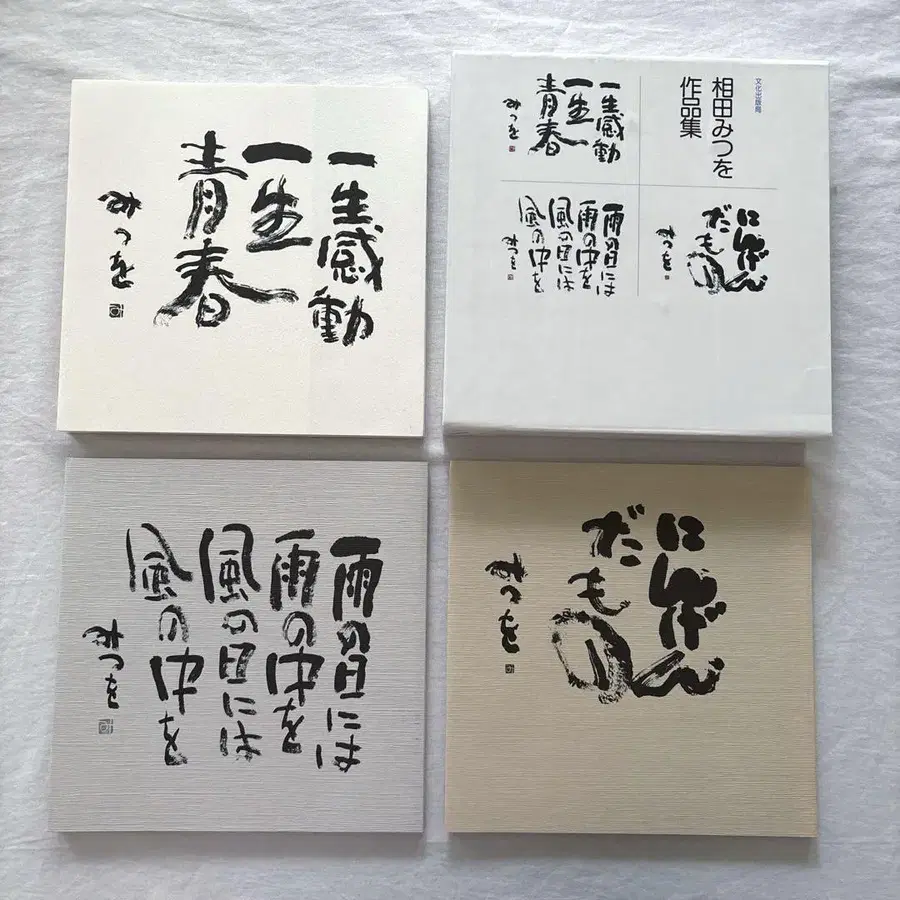 一生感動
一生
青春
みつを
文化出版局
相田みつを
作品集
一生感動
一生
青春
みつを
雨の日には
雨の中を
風の日には
風の中を
みつを
にんげん
だもの
みつを
雨の日には
雨の中を
風の日には
風の中を
みつを
にんげん
だもの
みつを